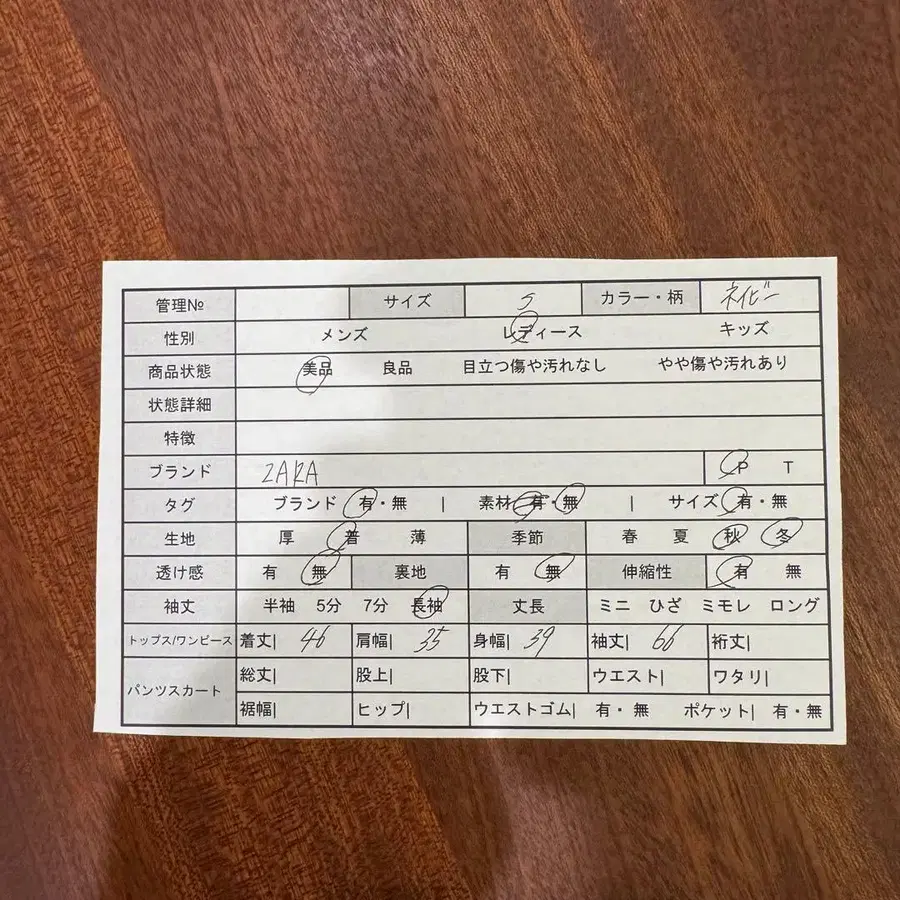 管理№ サイズ S カラー・柄 ネイビー
性別 メンズ レディース キッズ
商品状態 美品 良品 目立つ傷や汚れなし やや傷や汚れあり
状態詳細
特徴
ブランド ZARA P T
タグ ブランド 有・無 | 素材 有・無 | サイズ 有・無
生地 厚 普 薄 季節 春 夏 秋 冬
透け感 有 無 裏地 有 無 伸縮性 有 無
袖丈 半袖 5分 7分 長袖 丈長 ミニ ひざ ミモレ ロング
トップス/ワンピース 着丈| 46 肩幅| 35 身幅| 39 袖丈| 66 裄丈|
パンツスカート 総丈| 股上| 股下| ウエスト| ワタリ|
裾幅| ヒップ| ウエストゴム| 有・無 ポケット| 有・無